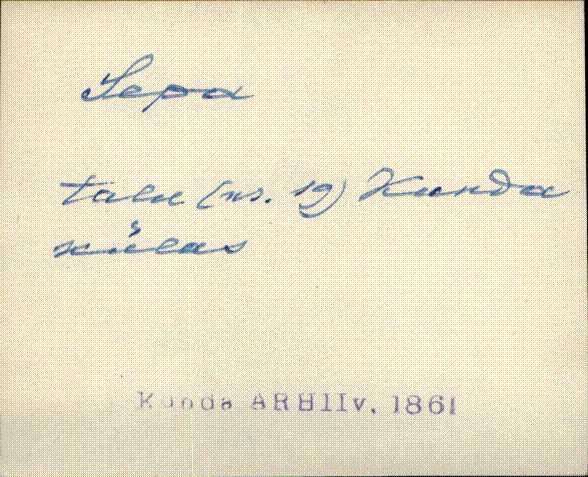 Sepa
talu (nr. 19) Kunda
külas
Kunda ARHIIv, 1861